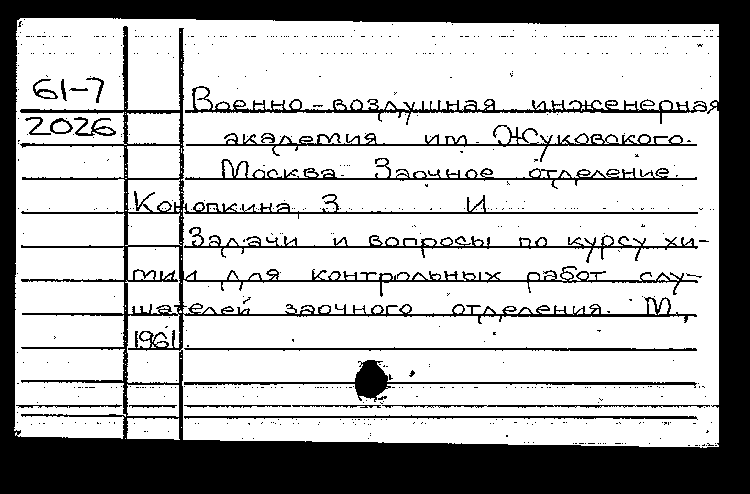 61-7
2026
Военно-воздушная инженерная
академия им. Жуковского.
Москва. Заочное отделение.
Конопкина, З И
Задачи и вопросы по курсу хи-
мии для контрольных работ слу-
шателей заочного отделения. М.,
1961.